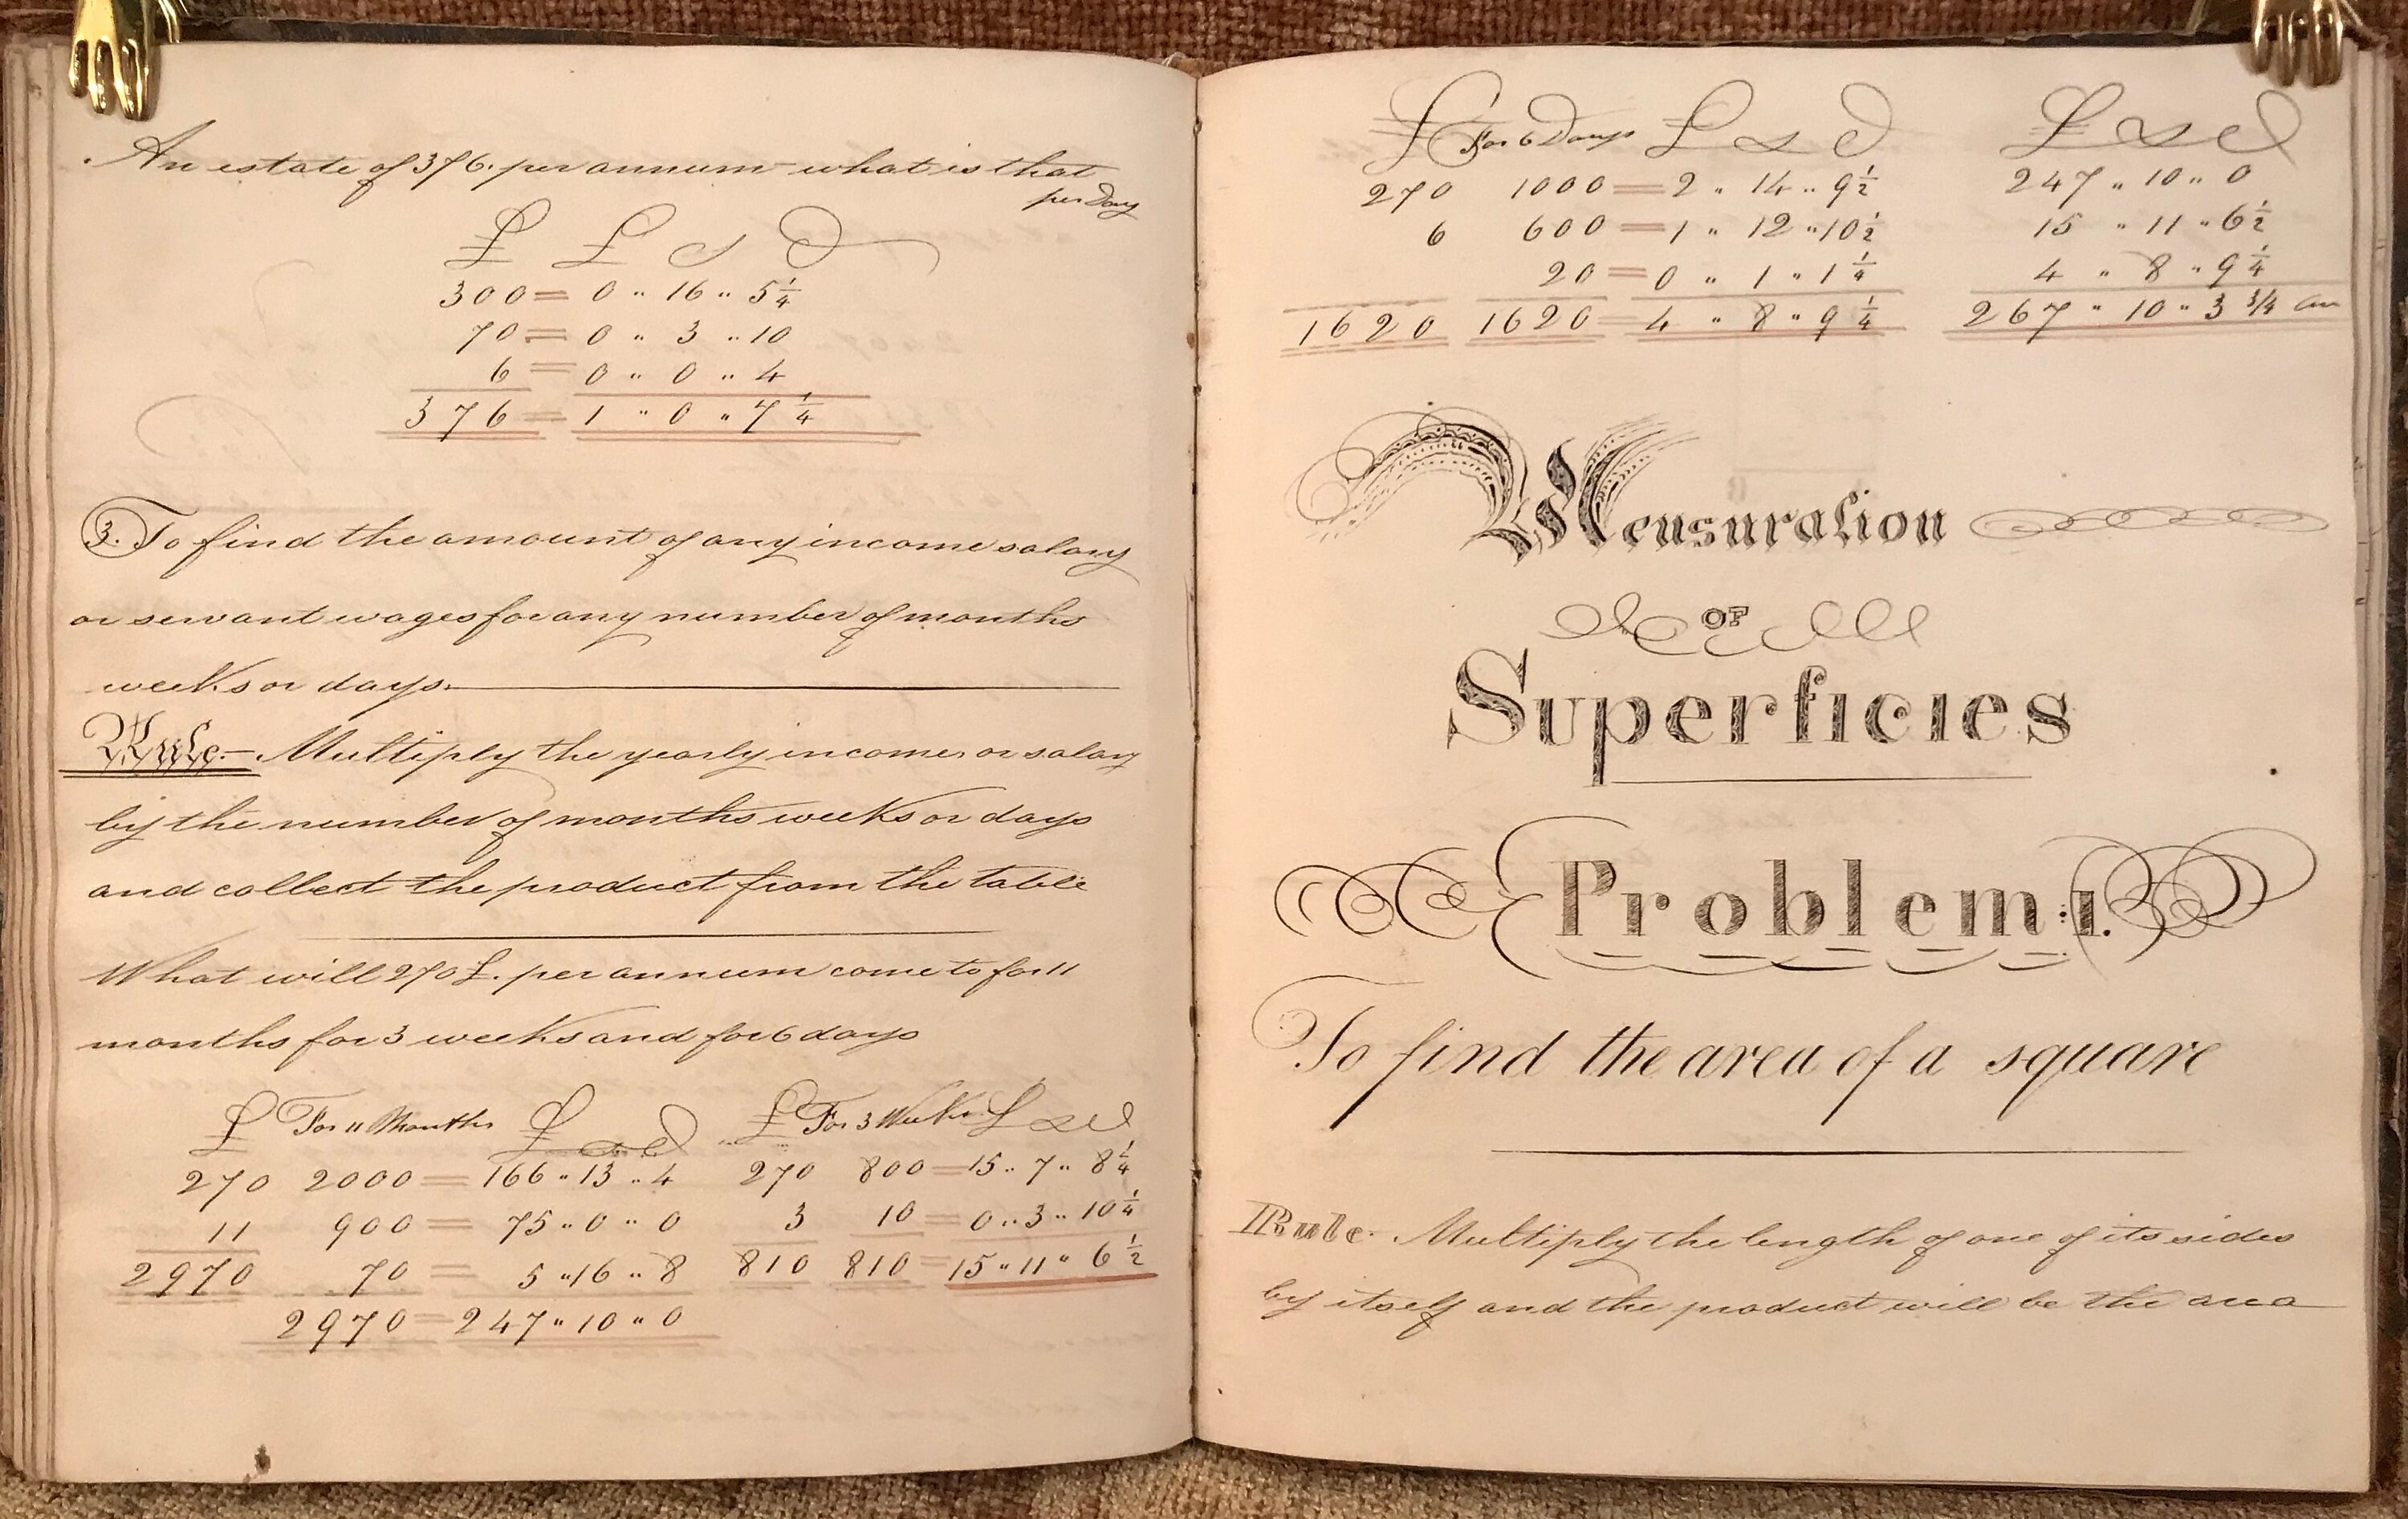 An estate of 376. per annum what is that
per Day
£ £ s D
300 = 0 " 16 " 5 1/4
70 = 0 " 3 " 10
6 = 0 " 0 " 4
376 = 1 " 0 " 7 1/4
3. To find the amount of any income salary
or servant wages for any number of months
weeks or days.
Rule.— Multiply the yearly income or salary
by the number of months weeks or days
and collect the product from the table
What will 270£. per annum come to for 11
months for 3 weeks and for 6 days
£ For 11 Months £ s d
270 2000 = 166 " 13 " 4
11 900 = 75 " 0 " 0
2970 70 = 5 " 16 " 8
2970 = 247 " 10 " 0
£ For 3 Weeks £ s d
270 800 = 15 " 7 " 8 1/4
3 10 = 0 " 3 " 10 1/4
810 810 = 15 " 11 " 6 1/2
£ For 6 Days £ s D
270 1000 = 2 " 14 " 9 1/2
6 600 = 1 " 12 " 10 1/2
20 = 0 " 1 " 1 1/4
1620 1620 = 4 " 8 " 9 1/4
£ s d
247 " 10 " 0
15 " 11 " 6 1/2
4 " 8 " 9 1/4
267 " 10 " 3 3/4
Mensuration
OF
Superficies
Problem : 1.
To find the area of a square
Rule. Multiply the length of one of its sides
by itself and the product will be the area